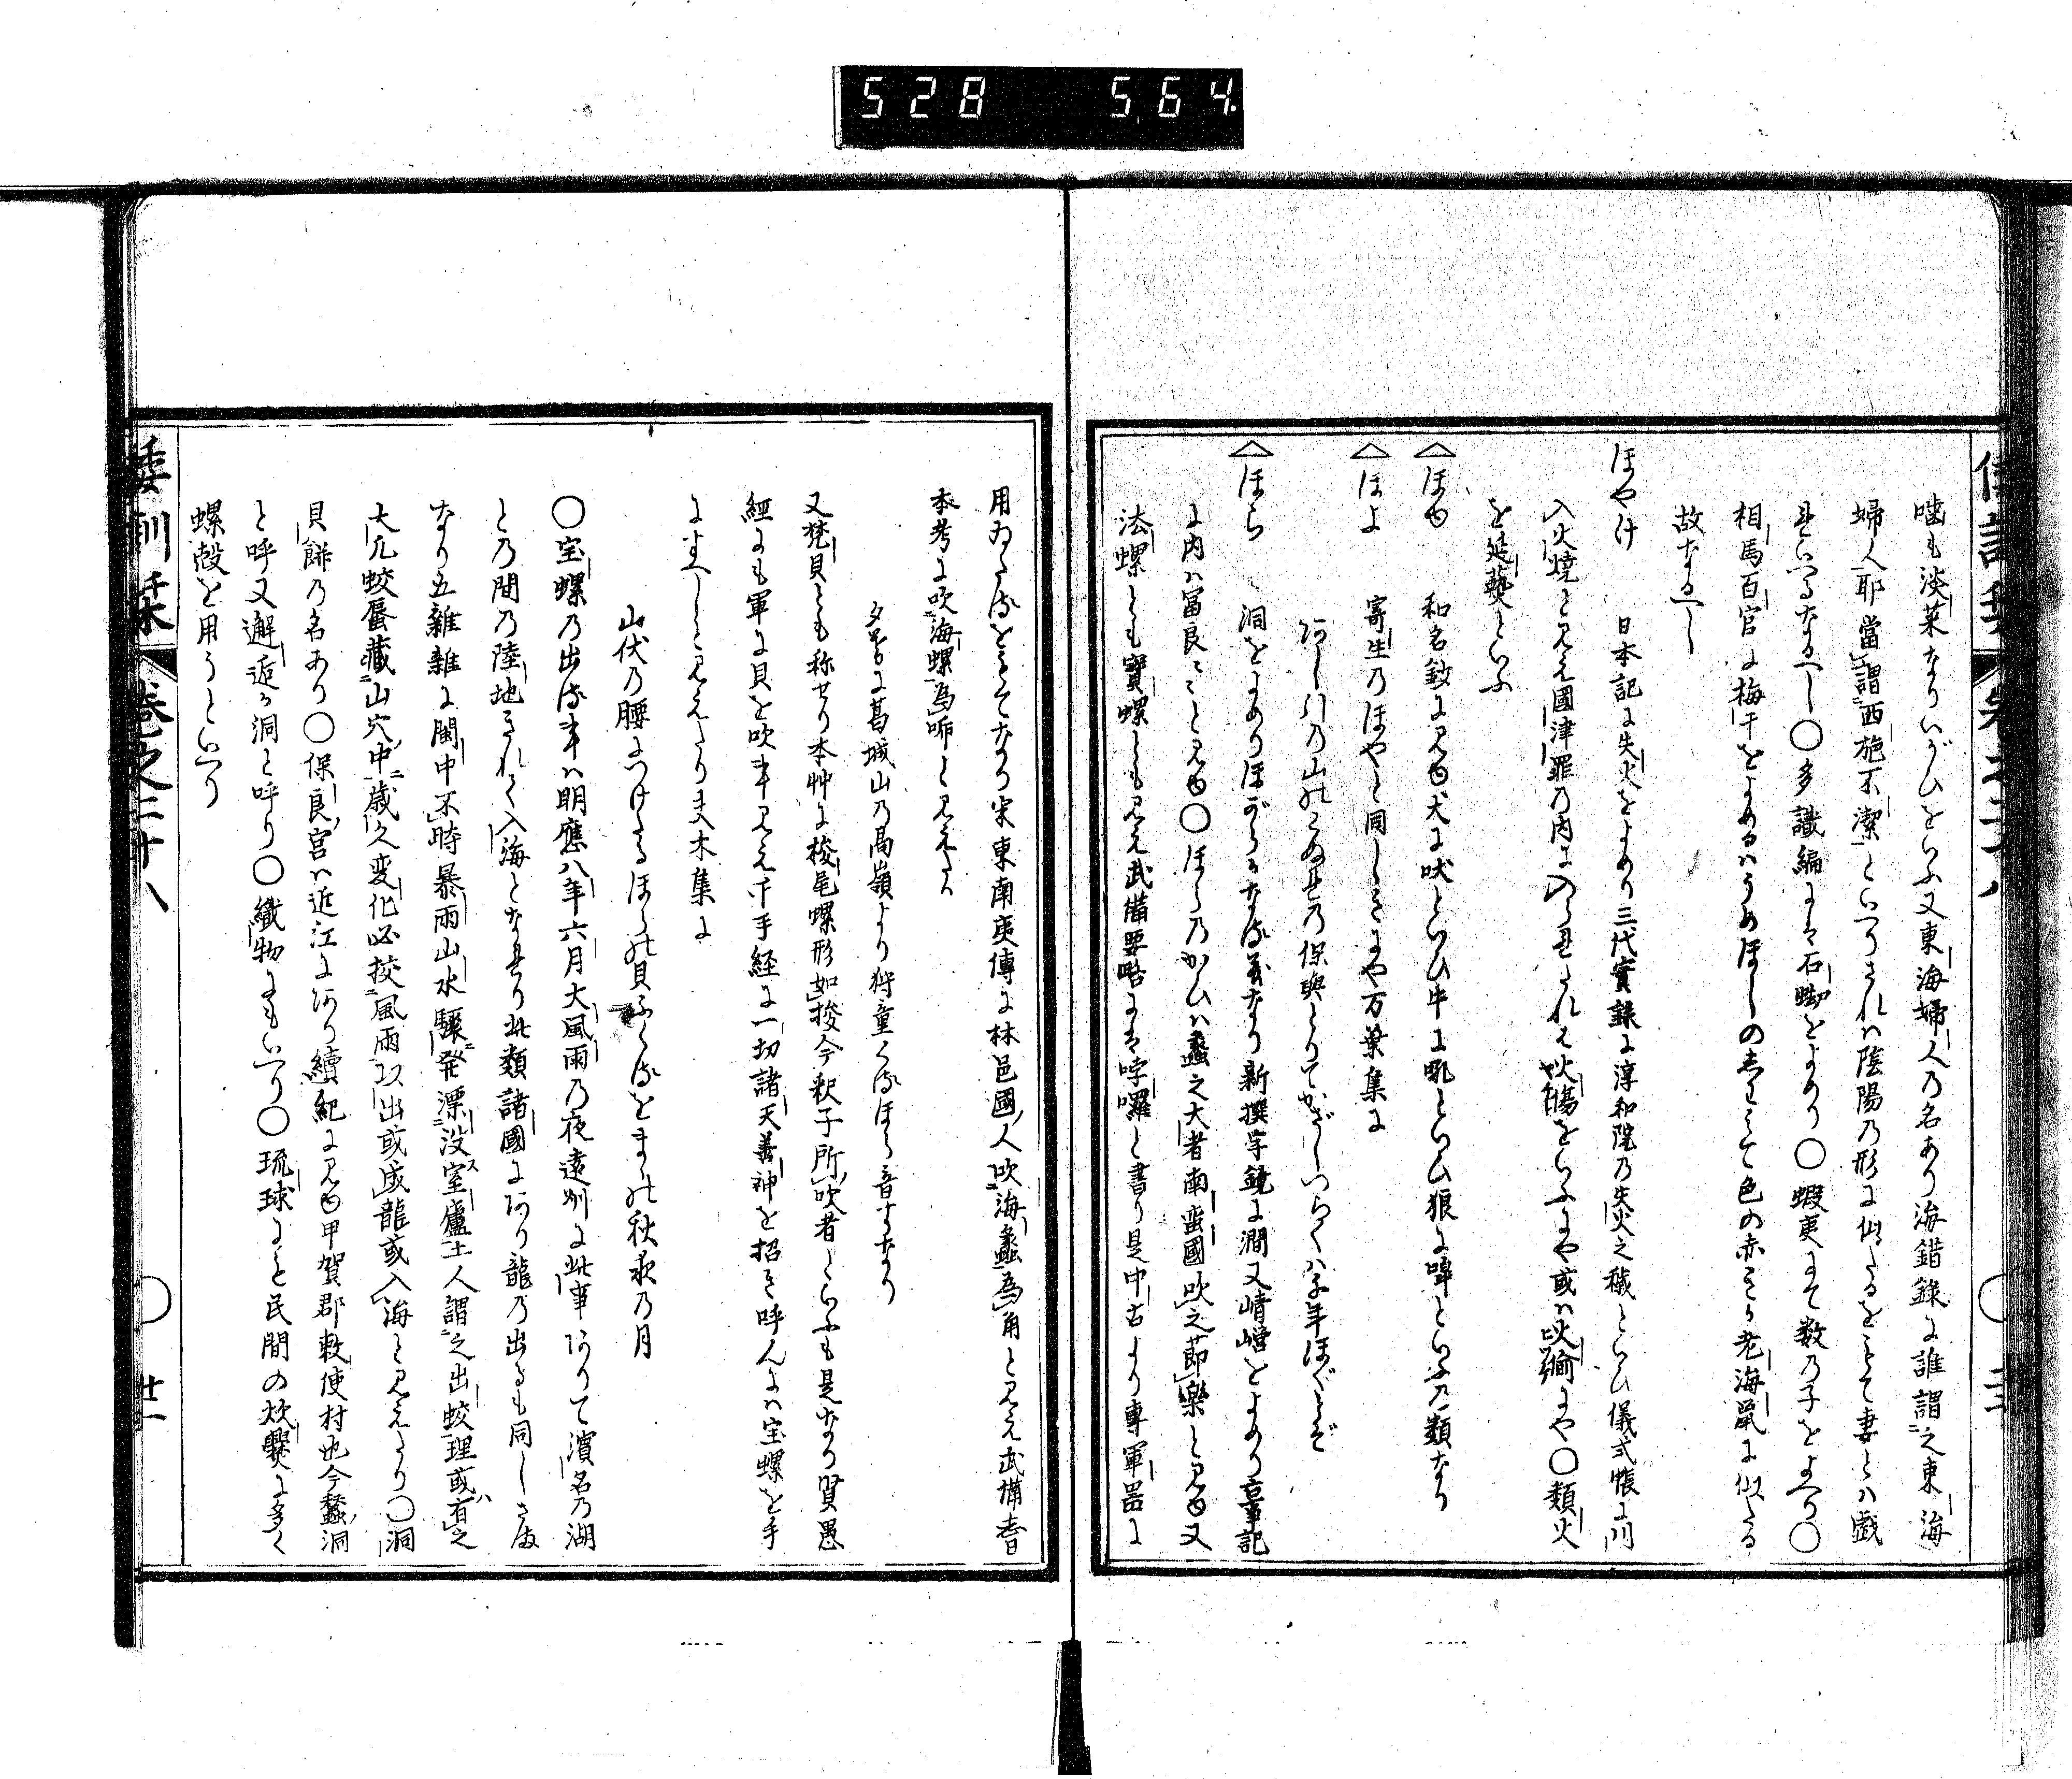 528 564.
嗌も淡菜なりいがひをいふ又東海婦人の名あり海錯錄に誰謂之東海
婦人耶當謂西施不潔といへりされハ陰陽の形に似たるをもて妻とハ戯
れいへるなるへし〇多識編にハ石蜐をよめり〇蝦夷にて数の子をよへり〇
相馬百官に梅干をよめるハうめほしの志わミて色の赤きか老海鼠に似たる
故なるへし
ほやけ 日本記に失火をよめり三代實錄に淳和院の失火之穢といひ儀式帳に川
入火燒と見え國津罪の内に入られたれハ火傷をいふにや或ハ火にや〇類火
を延爇といふ
△ほゆ 和名鈔に見ゆ犬に吠といひ牛に吼といひ狼に嘷といふの類なり
△ほよ 寄生のほやと同しきにや万葉集に
あし引の山のこぬれの保與とりてかざしつらくハ千年ほぐとぞ
△ほら 洞をよめりほがらかなる義なり新撰字鏡に澗又崝嶝をよめり古事記
に内ハ冨良ミと見ゆ〇ほらのかひハ蠡之大者南蛮國吹之節樂と見ゆ又
法螺とも寳螺とも見え武備要略にハ哱囉と書り是中古より專軍器に
用ゐたるをもてなり宋東南夷傳に林邑國人吹海蠡為角と見え武備志
本考に吹海螺為號と見えたり
夕されに葛城山の高嶺より狩童くるほら音すなり
又梵貝とも称せり本艸に梭尾螺形如梭今釈子所吹者といふも是なり賢愚
經にも軍に貝を吹事見え千手経に一切諸天善神を招き呼んにハ宝螺を手
にすへしと見えたり夫木集に
山伏の腰につけたるほらの貝ふくるまゝの秋夜の月
〇宝螺の出る事ハ明應八年六月大風雨の夜遠州に此事ありて濱名の湖
との間の陸地きれて入海となれり此類諸國にあり龍の出るも同しさま
なり五雜雜に閩中不時暴雨山水驟発漂没室廬土人謂之出蛟理或有之
大凡蛟蜃藏山穴中歳久変化必挾風雨以出或成龍或入海と見えたり〇洞
貝餠の名あり〇保良宮ハ近江にあり續紀に見ゆ甲賀郡敕使村也今蠡洞
と呼又邂逅か洞と呼り〇織物にもいへり〇琉球にてハ民間の炊爨に多く
螺殻を用うといへり
倭訓栞 卷之二十八 〇 廿一